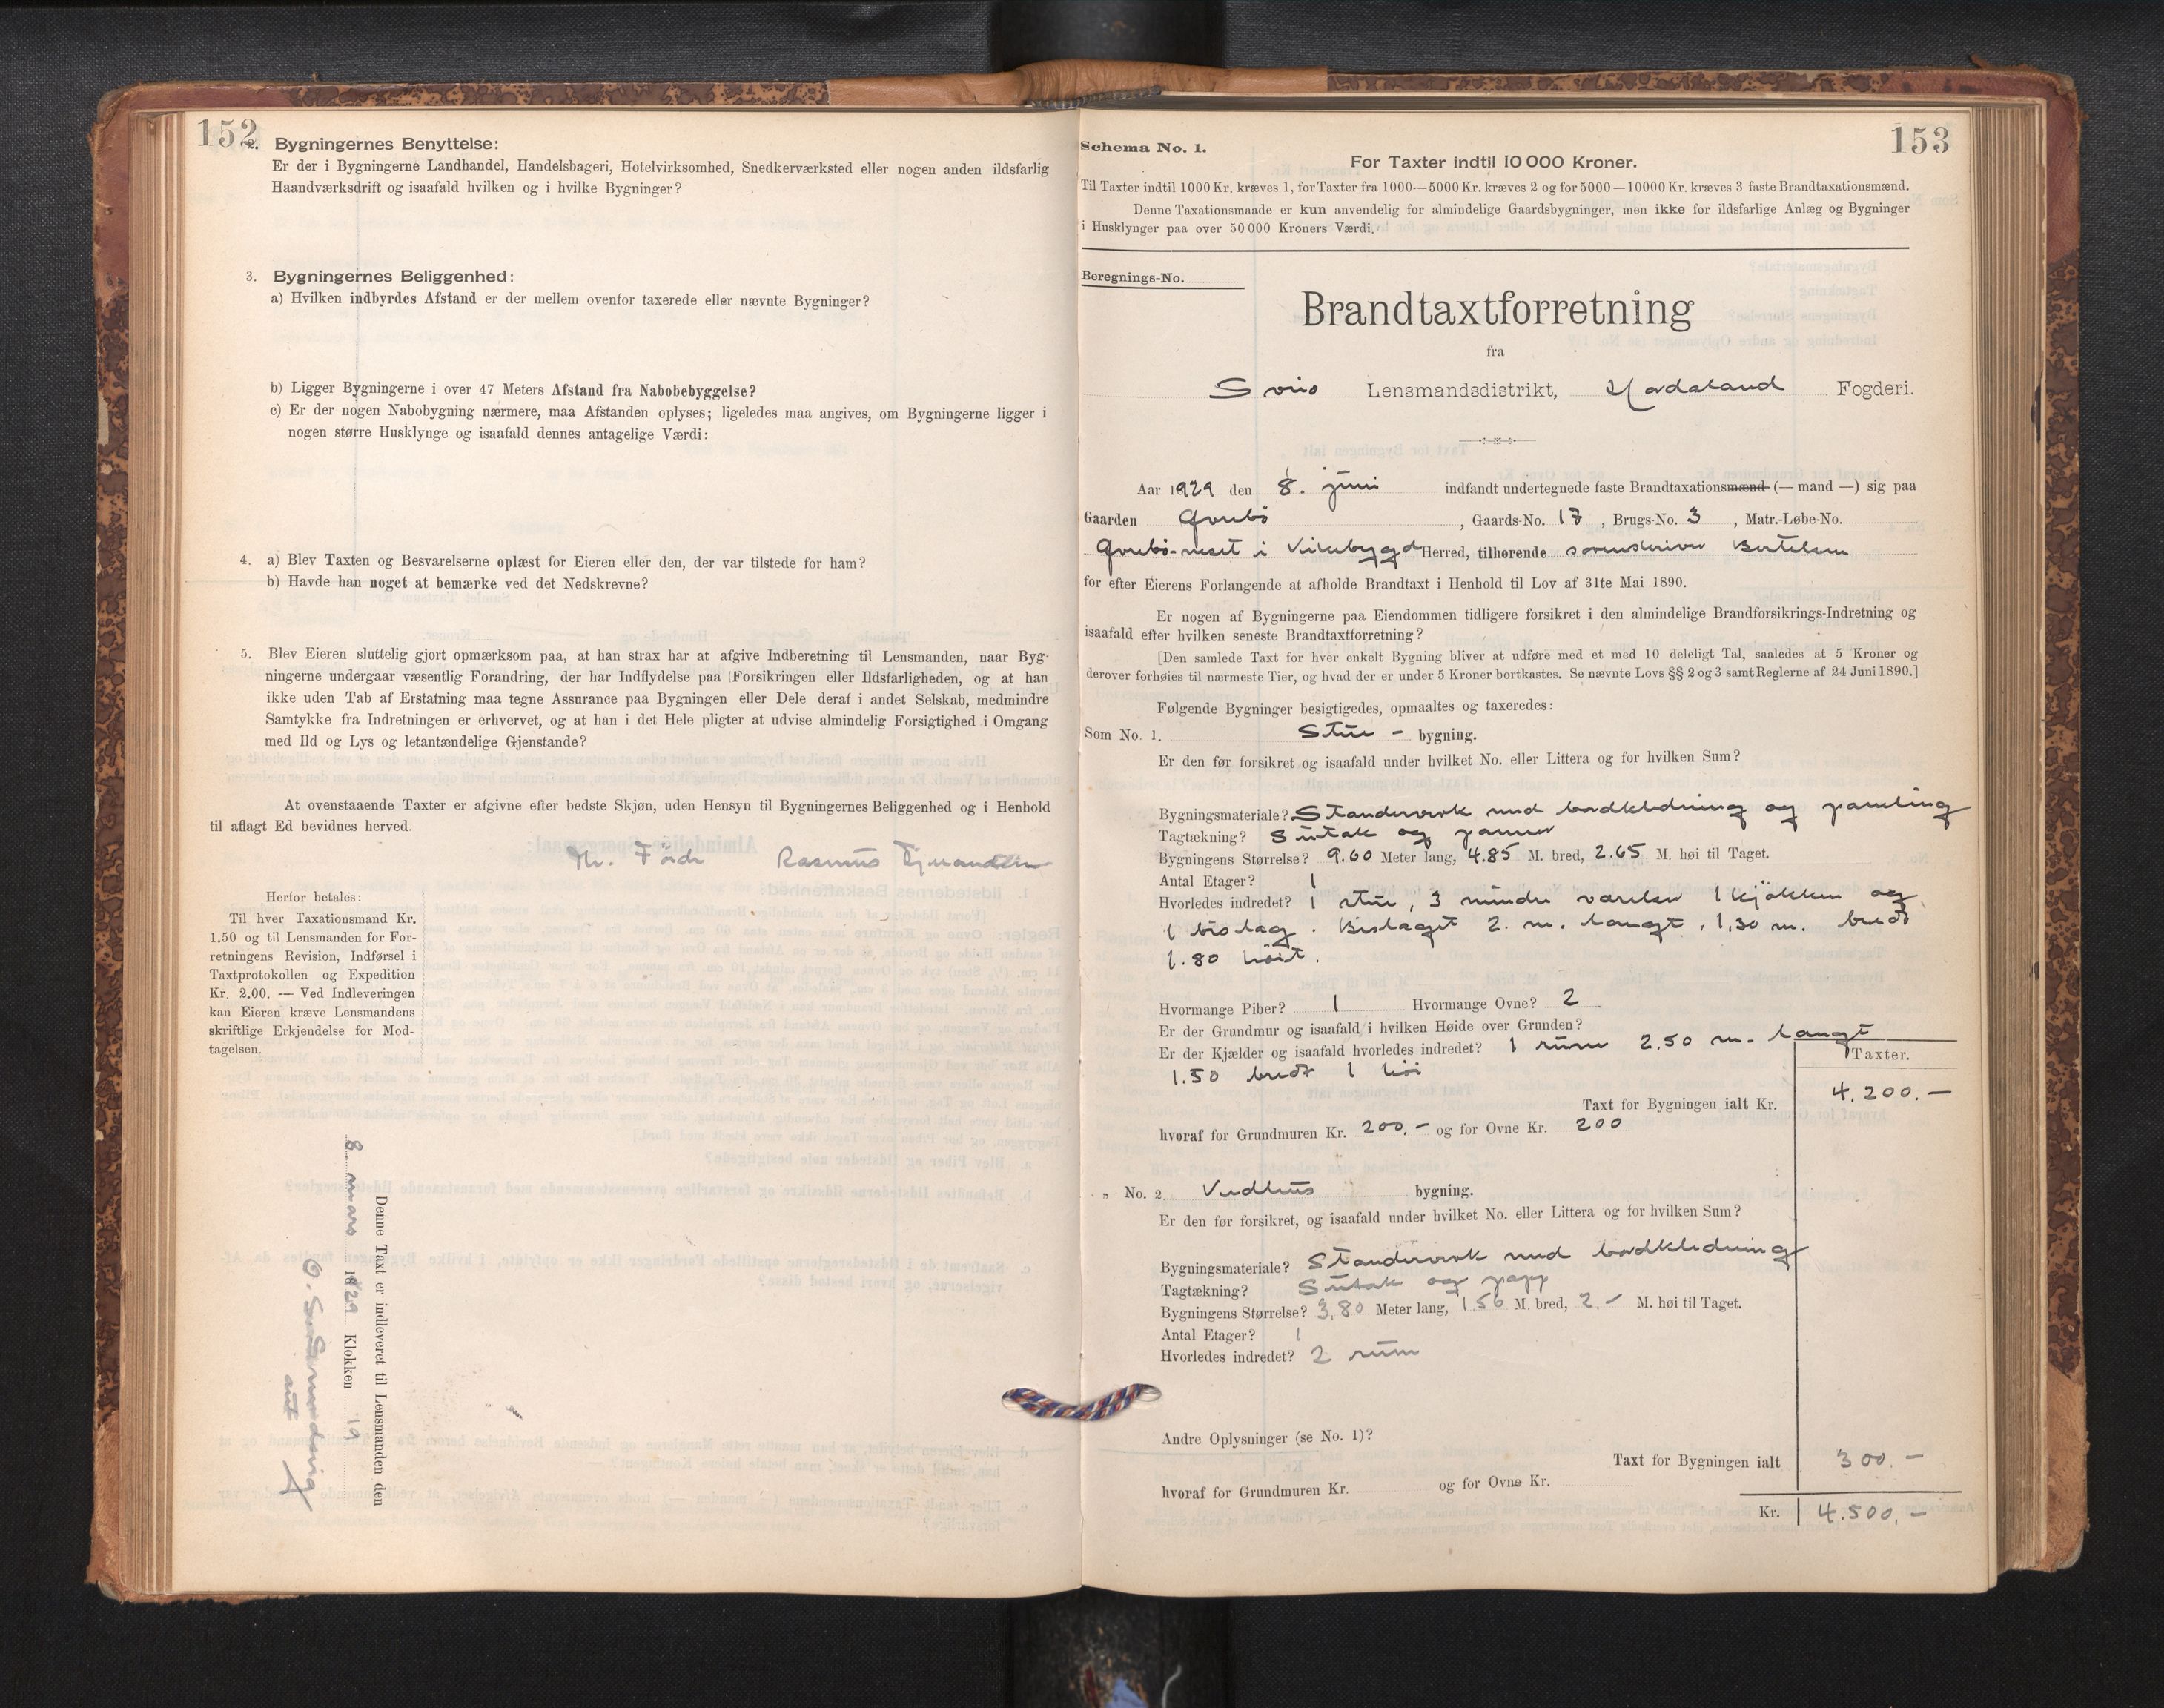 152
2. Bygningernes Benyttelse:
Er der i Bygningerne Landhandel, Handelsbageri, Hotelvirksomhed, Snedkerværksted eller nogen anden ildsfarlig
Haandværksdrift og isaafald hvilken og i hvilke Bygninger?
3. Bygningernes Beliggenhed:
a) Hvilken indbyrdes Afstand er der mellem ovenfor taxerede eller nævnte Bygninger?
b) Ligger Bygningerne i over 47 Meters Afstand fra Nabobebyggelse?
c) Er der nogen Nabobygning nærmere, maa Afstanden oplyses; ligeledes maa angives, om Bygningerne ligger i
nogen større Husklynge og isaafald dennes antagelige Værdi:
4. a) Blev Taxten og Besvarelserne oplæst for Eieren eller den, der var tilstede for ham?
b) Havde han noget at bemærke ved det Nedskrevne?
5. Blev Eieren sluttelig gjort opmærksom paa, at han strax har at afgive Indberetning til Lensmanden, naar Byg-
ningerne undergaar væsentlig Forandring, der har Indflydelse paa Forsikringen eller Ildsfarligheden, og at han
ikke uden Tab af Erstatning maa tegne Assurance paa Bygningen eller Dele deraf i andet Selskab, medmindre
Samtykke fra Indretningen er erhvervet, og at han i det Hele pligter at udvise almindelig Forsigtighed i Omgang
med Ild og Lys og letantændelige Gjenstande?
At ovenstaaende Taxter er afgivne efter bedste Skjøn, uden Hensyn til Bygningernes Beliggenhed og i Henhold
til aflagt Ed bevidnes herved.
Rasmus
Herfor betales:
Til hver Taxationsmand Kr.
1.50 og til Lensmanden for For-
retningens Revision, Indførsel i
Taxtprotokollen og Expedition
Kr. 2.00. — Ved Indleveringen
kan Eieren kræve Lensmandens
skriftlige Erkjendelse for Mod-
tagelsen.
Denne Taxt er indleveret til Lensmanden den
8. mars 1929 Klokken 19
153
Schema No. 1.
For Taxter indtil 10 000 Kroner.
Til Taxter indtil 1000 Kr. kræves 1, for Taxter fra 1000—5000 Kr. kræves 2 og for 5000—10000 Kr. kræves 3 faste Brandtaxationsmænd.
Denne Taxationsmaade er kun anvendelig for almindelige Gaardsbygninger, men ikke for ildsfarlige Anlæg og Bygninger
i Husklynger paa over 50 000 Kroners Værdi.
Beregnings-No.
Brandtaxtforretning
fra
Sveio Lensmandsdistrikt, Hordaland Fogderi.
Aar 1929 den 8. juni indfandt undertegnede faste Brandtaxationsmænd (— mand —) sig paa
Gaarden Kvebø, Gaards-No. 17, Brugs-No. 3, Matr.-Løbe-No.
i Vikebygd Herred, tilhørende sorenskriver Bertelsen
for efter Eierens Forlangende at afholde Brandtaxt i Henhold til Lov af 31te Mai 1890.
Er nogen af Bygningerne paa Eiendommen tidligere forsikret i den almindelige Brandforsikrings-Indretning og
isaafald efter hvilken seneste Brandtaxtforretning?
[Den samlede Taxt for hver enkelt Bygning bliver at udføre med et med 10 deleligt Tal, saaledes at 5 Kroner og
derover forhøies til nærmeste Tier, og hvad der er under 5 Kroner bortkastes. Se nævnte Lovs §§ 2 og 3 samt Reglerne af 24 Juni 1890.]
Følgende Bygninger besigtigedes, opmaaltes og taxeredes:
Som No. 1. Stue - bygning.
Er den før forsikret og isaafald under hvilket No. eller Littera og for hvilken Sum?
Bygningsmateriale? Standerverk med bordkledning og paneling
Tagtækning? Sutak og panner
Bygningens Størrelse? 9.60 Meter lang, 4.85 M. bred, 2.65 M. høi til Taget.
Antal Etager? 1
Hvorledes indredet? 1 stue, 3 mindre værelser 1 kjøkken og
1 bislag. Bislaget 2. m. langt, 1,30 m. bredt
1.80 høit.
Hvormange Piber? 1 Hvormange Ovne? 2
Er der Grundmur og isaafald i hvilken Høide over Grunden?
Er der Kjælder og isaafald hvorledes indredet? 1 rum 2.50 m. langt
1.50 bredt 1 høi
Taxter.
Taxt for Bygningen ialt Kr. 4.200.—
hvoraf for Grundmuren Kr. 200.— og for Ovne Kr. 200
„ No. 2 Vedhus bygning.
Er den før forsikret, og isaafald under hvilket No. eller Littera og for hvilken Sum?
Bygningsmateriale? Standerverk med bordkledning
Tagtækning? Sutak og papp
Bygningens Størrelse? 3,80 Meter lang, 1.56 M. bred, 2.— M. høi til Taget.
Antal Etager? 1
Hvorledes indredet? 2 rum
Andre Oplysninger (se No. 1)?
Taxt for Bygningen ialt 300.—
hvoraf for Grundmuren Kr. og for Ovne Kr.
Kr. 4.500.—